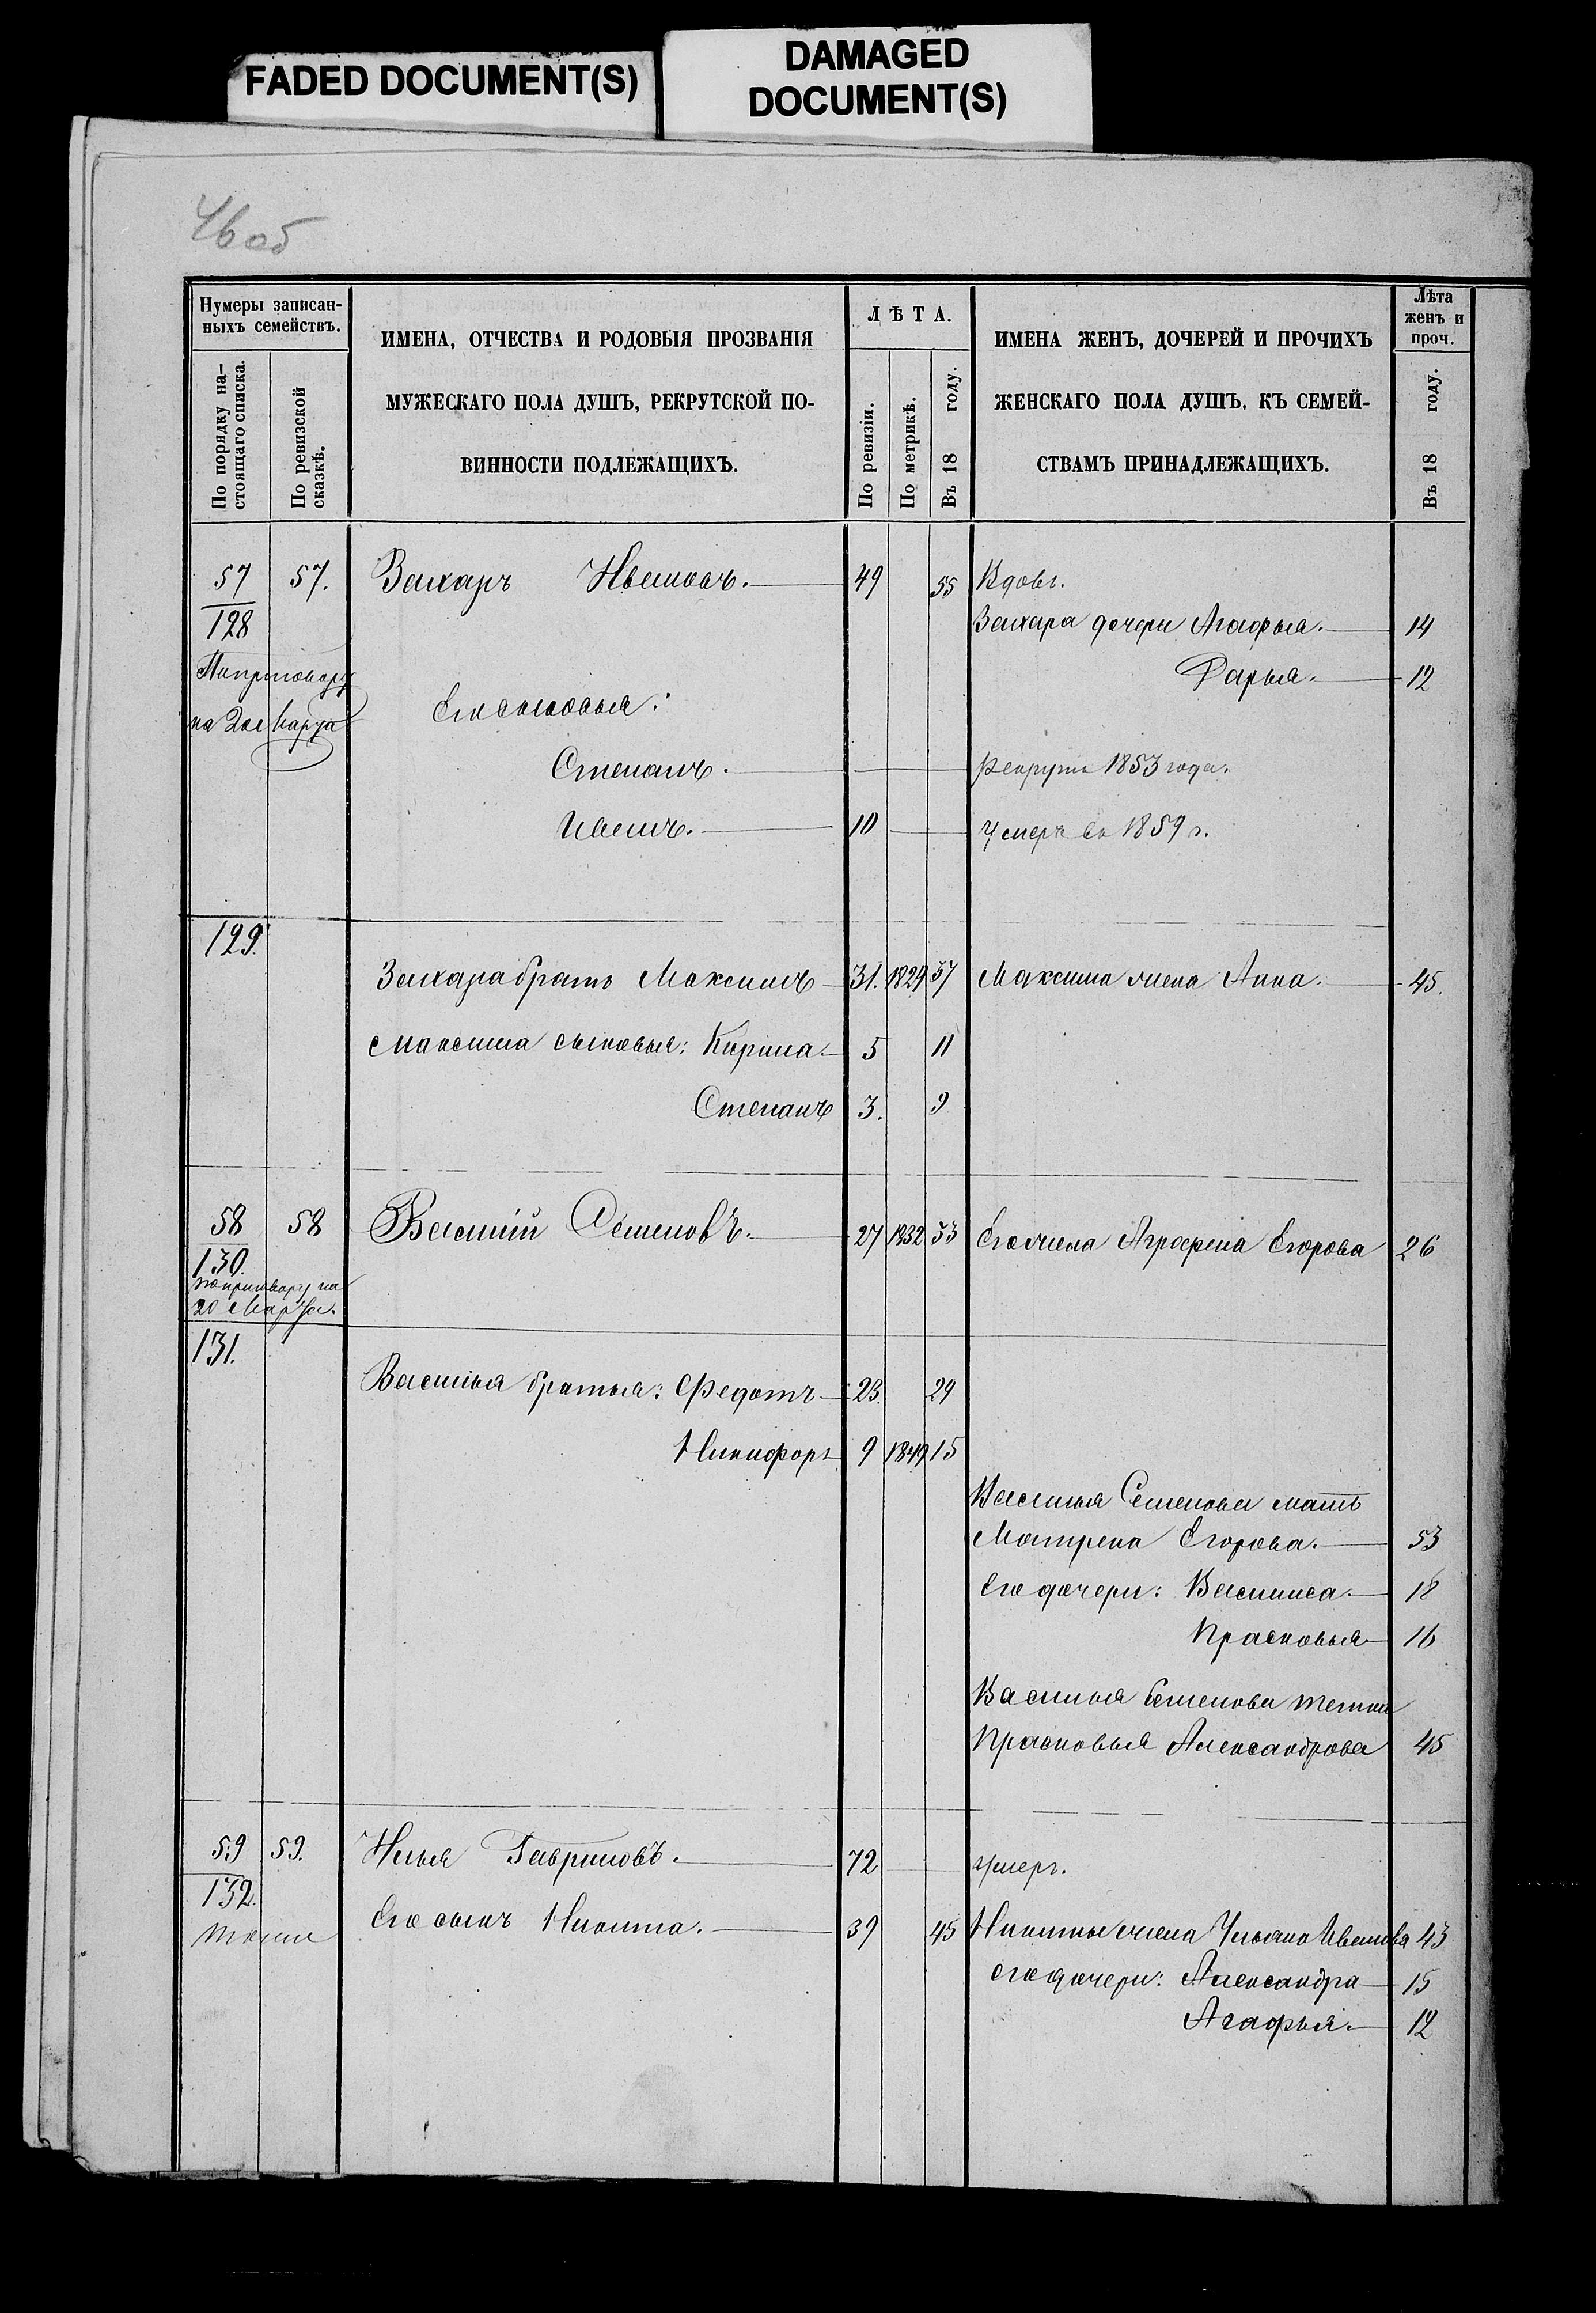 FADED DOCUMENT(S)
DAMAGED
DOCUMENT(S)
46 об
Нумеры записан-
ныхъ семействъ.
По порядку на-
стоящаго списка.
По ревизской
сказкѣ.
ИМЕНА, ОТЧЕСТВА И РОДОВЫЯ ПРОЗВАНІЯ
МУЖЕСКАГО ПОЛА ДУШЪ, РЕКРУТСКОЙ ПО-
ВИННОСТИ ПОДЛЕЖАЩИХЪ.
ЛѢТА.
По ревизіи.
По метрикѣ.
Въ 18 году.
ИМЕНА ЖЕНЪ, ДОЧЕРЕЙ И ПРОЧИХЪ
ЖЕНСКАГО ПОЛА ДУШЪ, КЪ СЕМЕЙ-
СТВАМЪ ПРИНАДЛЕЖАЩИХЪ.
Лѣта
женъ и
проч.
Въ 18 году.
57 57. Захаръ Ивановъ. 49 55 Вдовъ.
128 Захара дочери Агафья. 14
По приговору Дарья. 12
на 20е Марта Его сыновья:
Степанъ. Рекрутъ 1853 года.
Иванъ. 10 Умеръ въ 1859 г.
129.
Захара братъ Максимъ 31. 1829 37 Максима жена Анна. 45.
Максима сыновья: Кирила 5 11
Степанъ 3. 9
58 58 Василій Семеновъ. 27 1832 33 Его жена Аграфена Егорова 26
130.
по приговору на
20 Марта.
131.
Василья братья: Федотъ 23. 29
Никифоръ 9 1849 15
Василья Семенова мать
Матрена Егорова. 53
Его дочери: Василиса 18
Прасковья 16
Василья Семенова тетка
Прасковья Александрова 45
59 59. Илья Гавриловъ. 72 Умеръ.
132. Его сынъ Никита. 39 45 Никиты жена Ульяна Иванова 43
тоже
его дочери: Александра 15
Агафья. 12